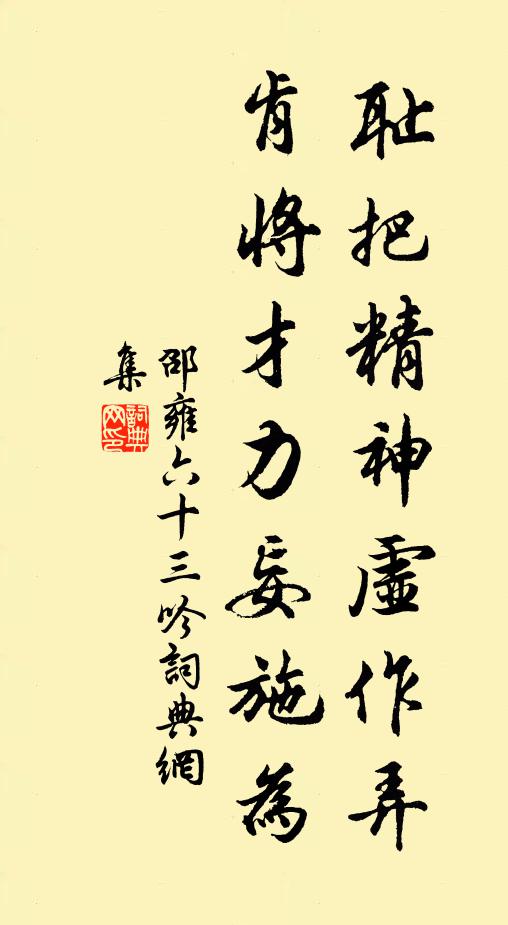 耻把精神虛作弄
肯將才力妄施為
邵雍六十三吟詞典網
集
詞典网印